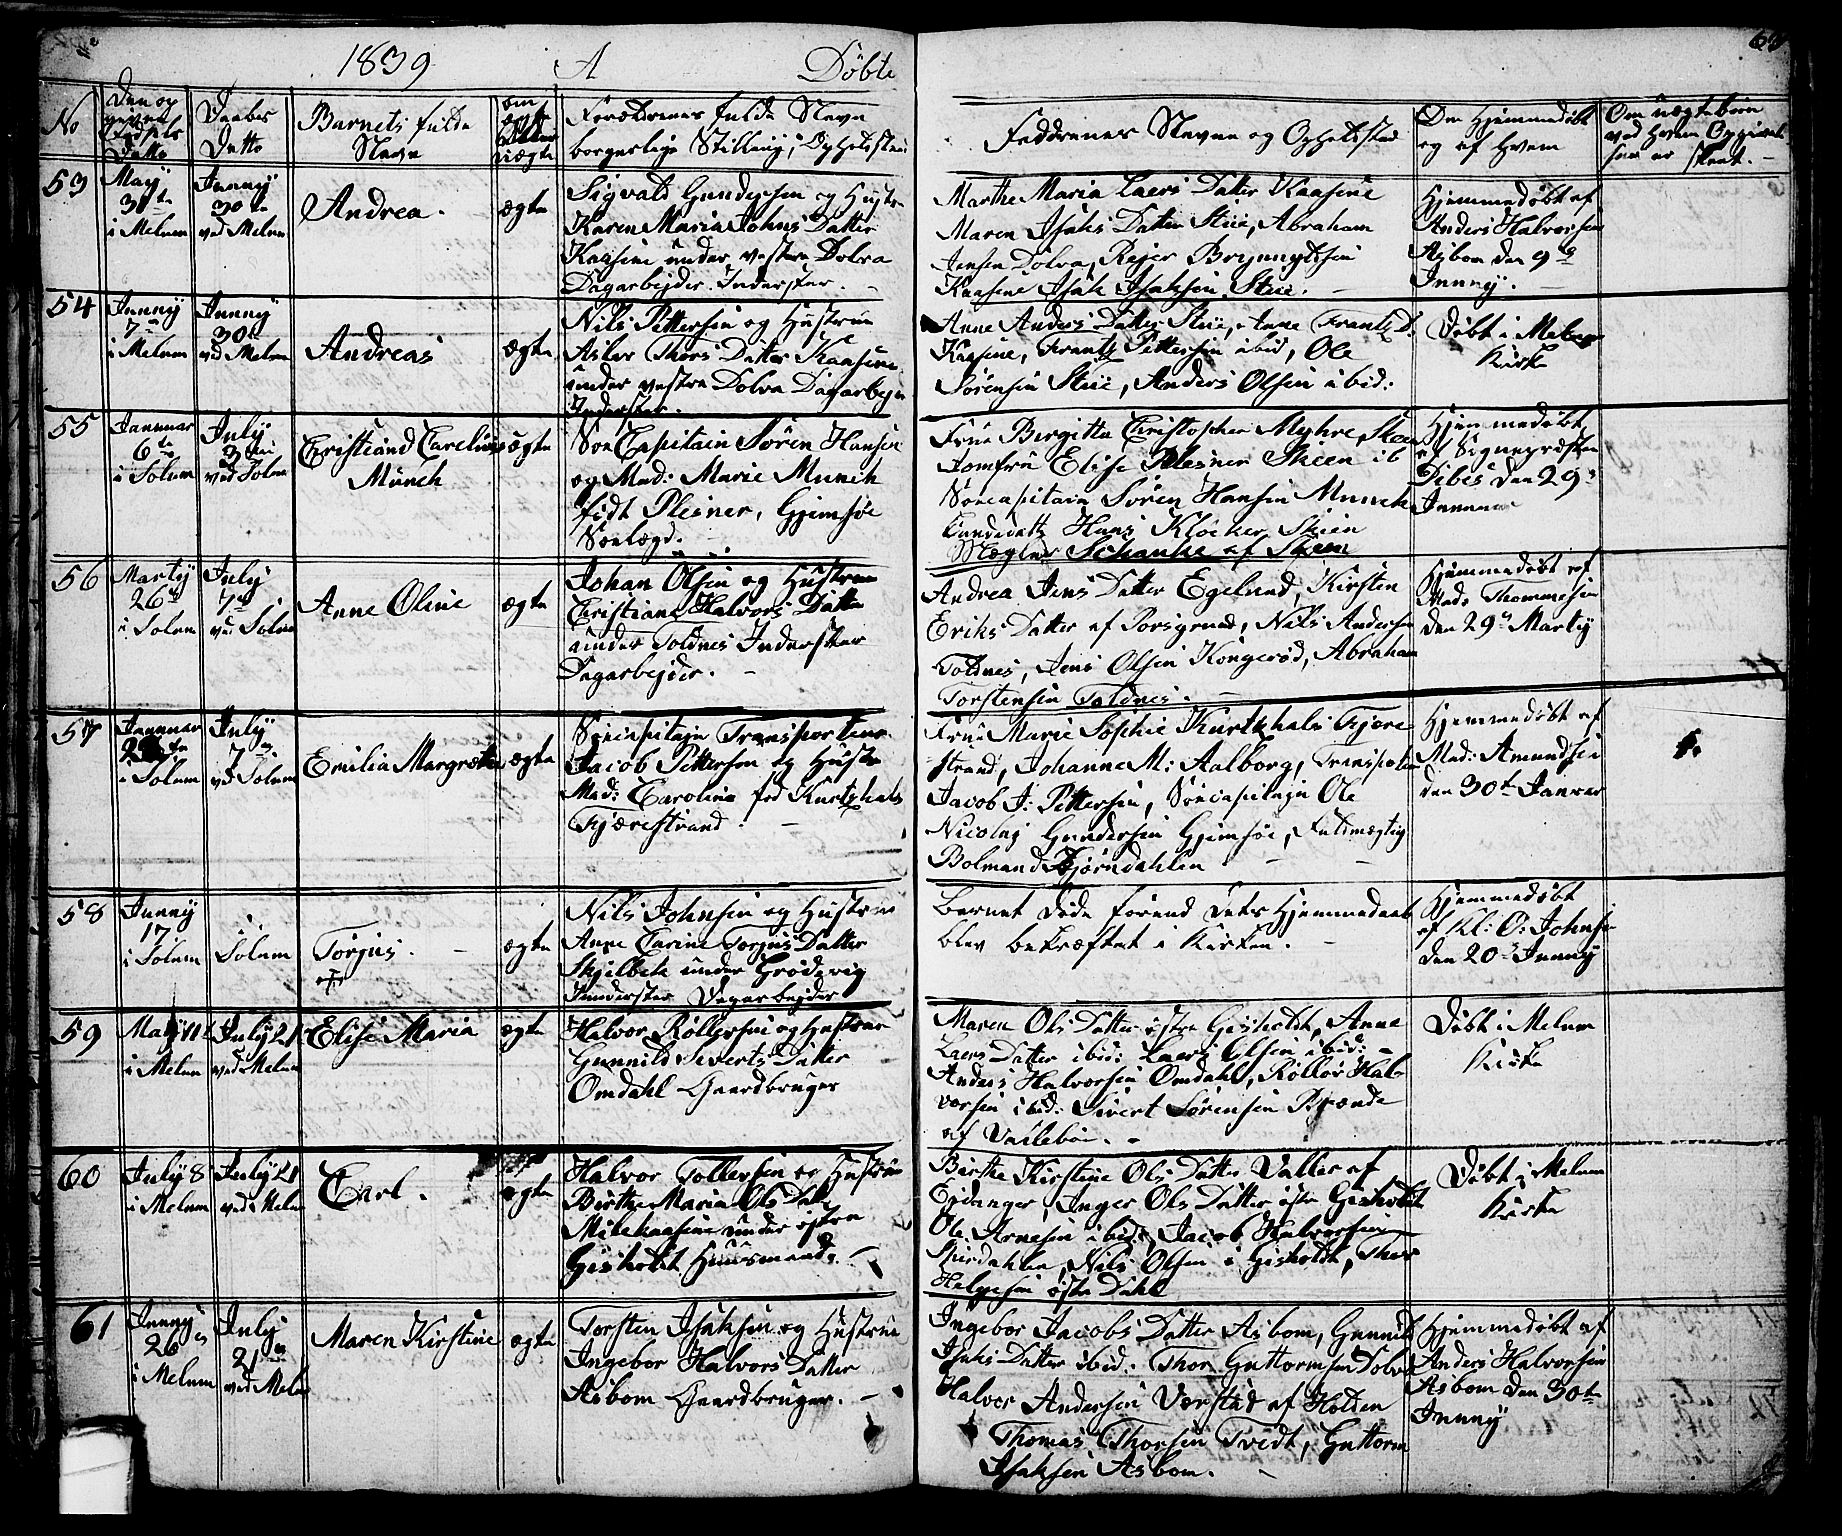 1839 A Døbte
No
Barnets fulde
Navn
Forældrenes fulde Navn
borgerlige Stilling, Opholdsted
Faddernes Navne og Opholdsted
Om Hjemmedøbt
og af Hvem
53
May
30te
i Melum
Junny
30te
ved Melum
Andrea.
ægte
Sigvald Gundersen og Hustru
Karen Maria Johns Datter
Kaasene under vestre Dolva
Dagarbejder Inderster.
Marthe Maria Laers Datter Kaasene
Maren Isaks Datter Stiie, Abraham
Jensen Dolva, Rejer Brynnyldsen
Kaasene Isak Isaksen Stiie.
Hjemmedøbt af
Anders Halvorsen
Asbom den 9de
Junny.
54
Junny
7
i Melum
Junny
30
ved Melum
Andreas
ægte
Nils Pettersen og Hustrue
Aslov Thors Datter Kaasene
under vestre Dolva Dagarbejd
Inderster.
Anne Anders Datter Stiie, Anne Frantz D.
Kaasene, Frantz Pettersen ibid, Ole
Sørensen Stiie, Anders Olsen ibid:
Døbt i Melum
Kirke
55
Januar
6te
i Solum
July
3
ved Solum
Christiand Carelius
Münch
ægte
Søe Capitain Søren Hansen
og Mad: Marie Munch
født Plesner, Gjemsøe
Søelægd.
Frue Birgitte Christopher Myhre, Skeen
Jomfru Elise Plesner Skeen ib
Søecapitain Søren Hansen Munch
Candidatz Hans Klocker Skien
Mægler Schanke af Skeen
Hjemmedøbt
af Sognepresten
Dibes den 29
Januar
56
Marty
26
i Solum
July
7
ved Solum
Anne Oline
ægte
Johan Olsen og Hustrue
Christiane Halvors Datter
under Toldnes Inderster
Dagarbejder.
Andrea Jens Datter Egelund, Kirsten
Eriks Datter af Porsgrund, Nils Andersen
Toldnes, Jens Olsen Kongerød, Abraham
Torstensen Toldnes.
Hjemmedøbt af
Mads Thommesen
den 29 Marty
57
Januar
i Solum
July
7
ved Solum
Emilia Margrethe
ægte
Søecapitajn Transporteur
Jacob Pettersen og Hustru
Mad: Caroline fød Kurtzhals
Fjærestrand.
Frue Marie Sophie Kurtzhals Fjære
strand, Johanne M: Aalborg, Transporteur
Jacob J: Pettersen, Søecapitajn Ole
Nicolaj Gundersen Gjemsøe, Fuldmægtig
Bolmand Bjørndahlen
Hjemmedøbt af
Mad: Amundsen
den 30te Januar
58
Junny
17
i Solum
Solum
Torjus.
ægte
Nils Johnsen og Hustrue
Anne Carine Torjus Datter
Skjelbek under Grødevig
Inderster Dagarbejder
Barnet døde førend dets Hjemmedaab
blev bekræftet i Kirken.
Hjemmedøbt
af Kl: O: Johnsen
den 20 Junny
59
May 11te
i Melum
July 21
ved Melum
Elise Maria
ægte
Halvor Røllersen og Hustrue
Gunnild Siverts Datter
Omdahl Gaardbruger
Maren Ols Datter østre Gisholdt, Anne
Laers Datter ibid: Laers Olsen ibid:
Anders Halvorsen Omdahl, Røllør Hal-
vorsen ibid: Sivert Sørensen Brænde
af Vallebøe.
Døbt i Melum
Kirke
60
July 8
i Melum
July 21
ved Melum
Carl.
ægte
Halvor Tollersen og Hustrue
Birthe Maria Ols Datr
Milekaasene under østre
Gisholdt Huusmand.
Birthe Kirstine Ols Datter Valler af
Ejdanger, Inger Ols Datter østre Gisholdt
Ole Arnesen ibid: Jacob Halvorsen
Nils Olsen i Gisholdt, Thor
Helgesen østre Dahl
Døbt i Melum
Kirke
61
Junny
26
i Melum
July
21
ved Melum
Maren Kirstine
ægte
Torsten Isaksen og Hustrue
Ingebor Halvors Datter
Asbom Gaardbruger.
Ingebor Jacobs Datter Asbom, Gunnild
Isaks Datter ibid. Thor Guttormsen Dolva
Halvor Andersen Værstad af Holden
Thomas Thorsen Tvedt, Guttorm
Isaksen Asbom.
Hjemmedøbt af
Anders Halvorsen
Asbom den 30te
Junny